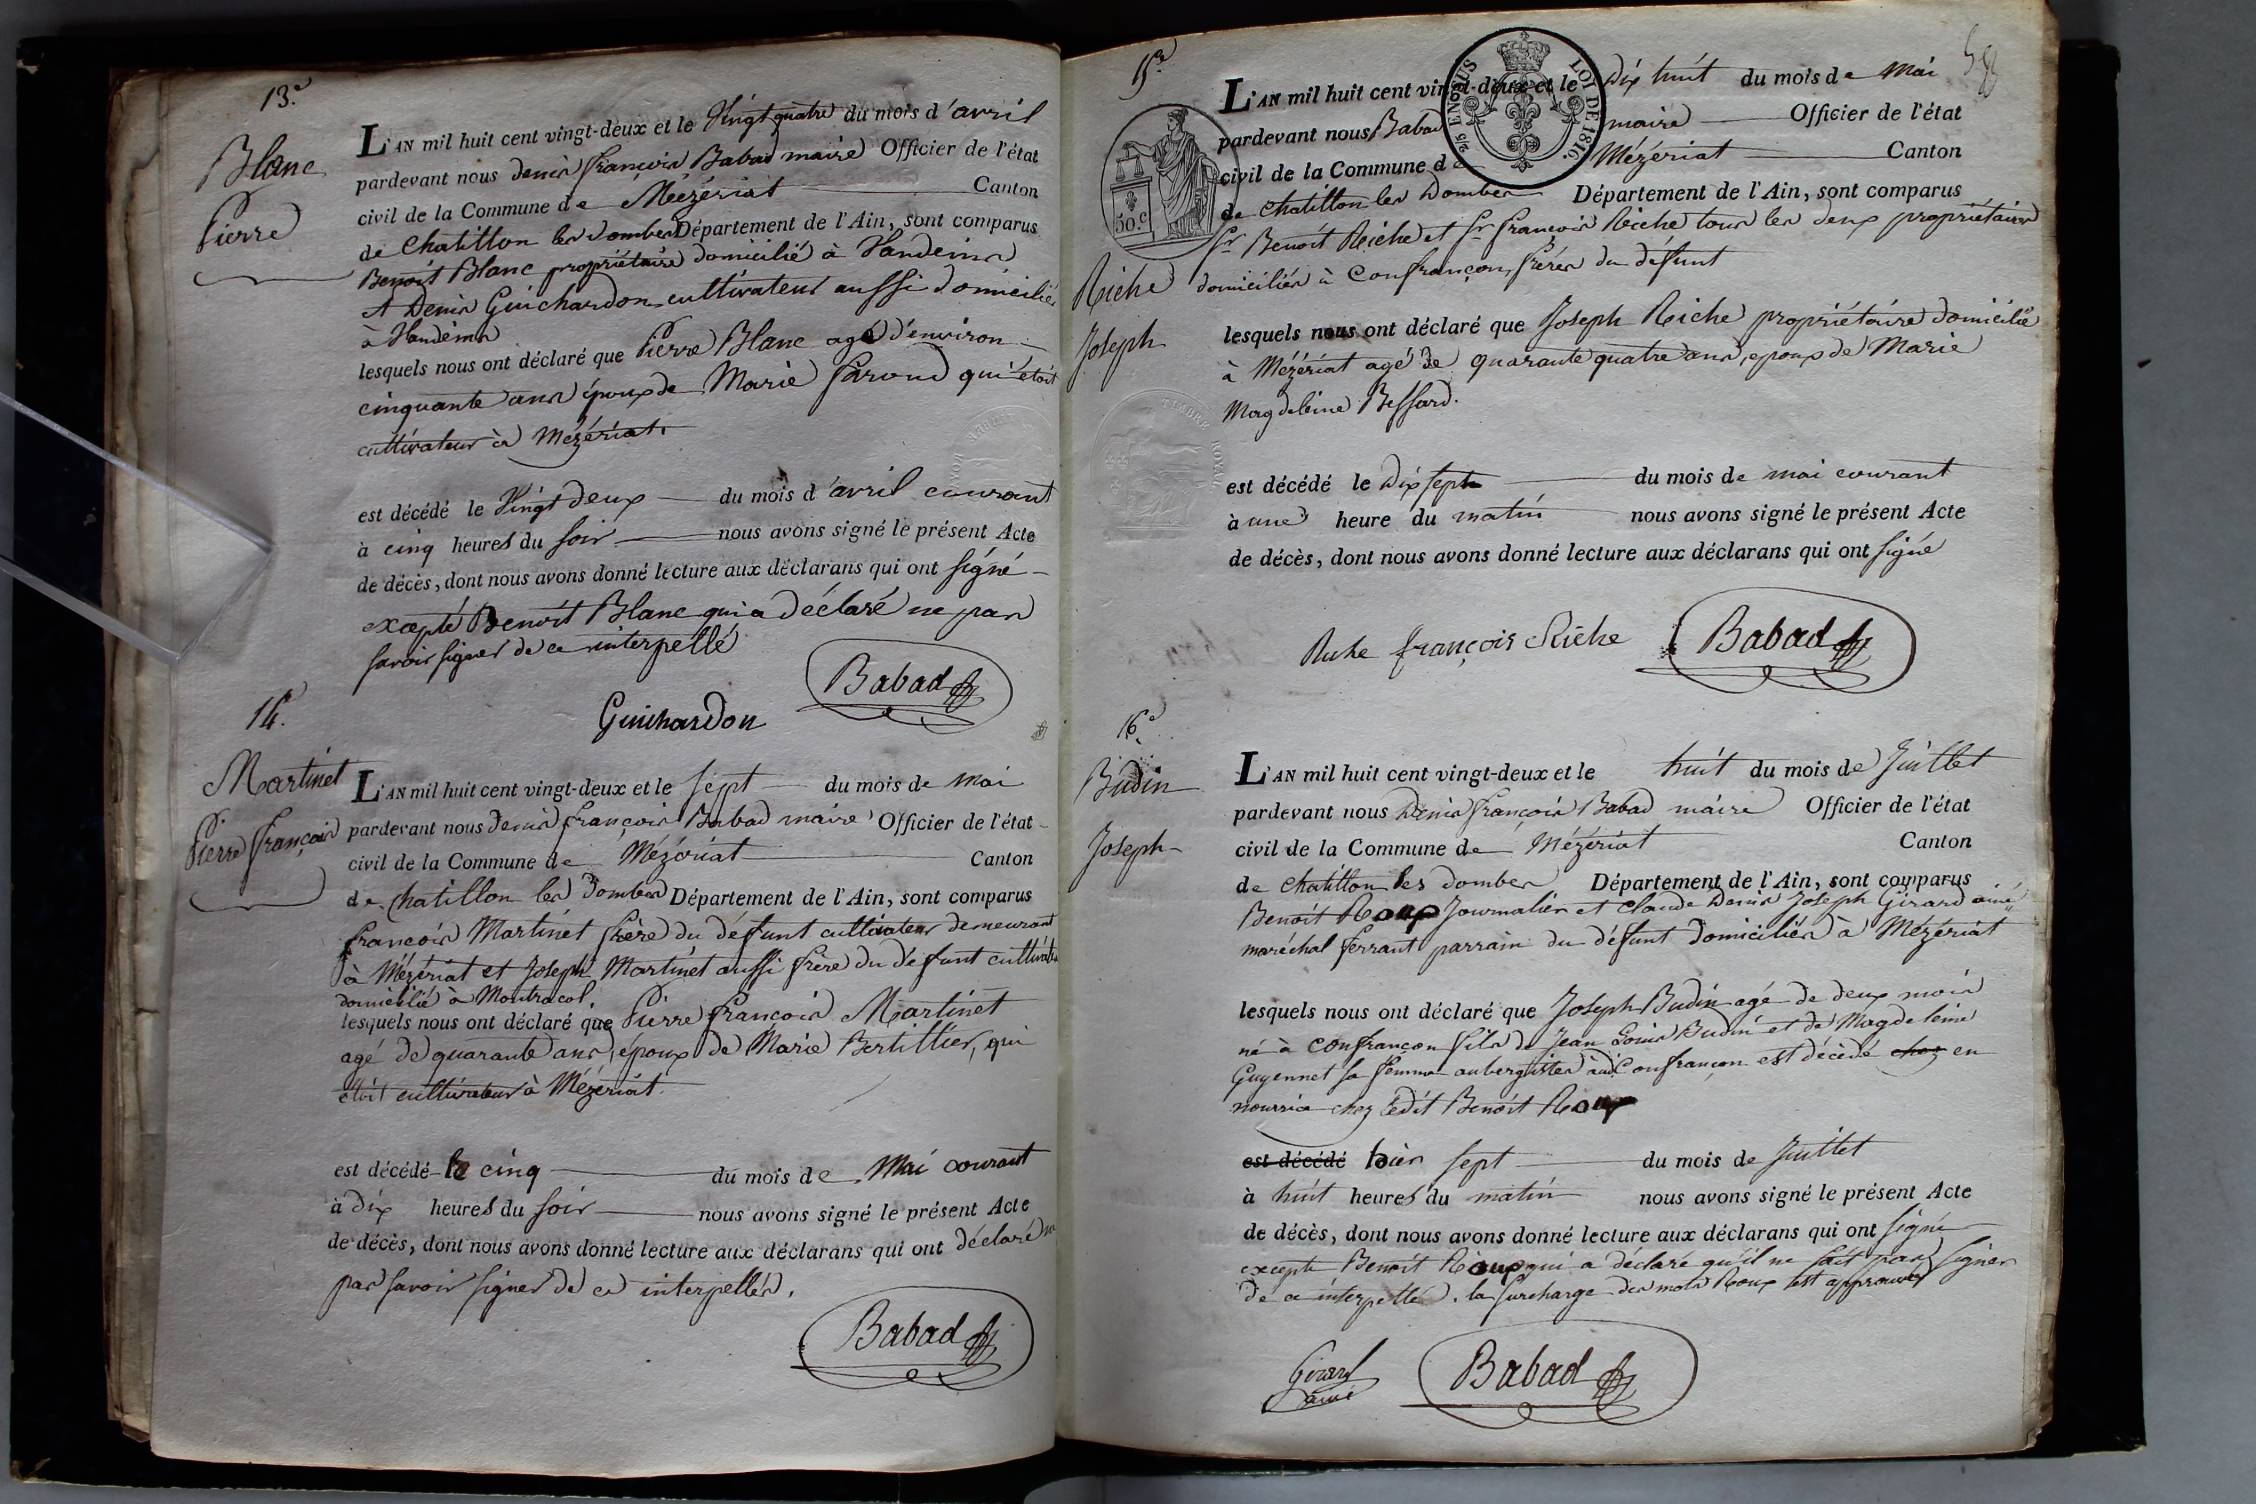 13.e
Blanc
Pierre
L'AN mil huit cent vingt-deux et le Vingt quatre du mois d'avril
pardevant nous denis françois Babad maire Officier de l'état
civil de la Commune de Mézériat Canton
de Chatillon les Dombes Département de l'Ain, sont comparus
Benoit Blanc propriétaire domicilié à Vandeins
et Denis Guichardon cultivateur aussi domicilié
à Vandeins
lesquels nous ont déclaré que Pierre Blanc agé d'environ
cinquante ans époux de Marie qui étoit
cultivateur à Mézériat.
est décédé le Vingt deux du mois d'avril courant
à cinq heures du soir nous avons signé le présent Acte
de décès, dont nous avons donné lecture aux déclarans qui ont signé
excepté Benoit Blanc qui a déclaré ne pas
savoir signer de ce interpellé
Babad
Guichardon
14.e
Martinet
Pierre françois
L'AN mil huit cent vingt-deux et le sept du mois de mai
pardevant nous denis françois Babad maire Officier de l'état
civil de la Commune de Mézériat Canton
de Chatillon les Dombes Département de l'Ain, sont comparus
françois Martinet frère du défunt cultivateur demeurant
à Mézériat et Joseph Martinet aussi frère du défunt
domicilié à Montracol.
lesquels nous ont déclaré que Pierre françois Martinet
agé de quarante ans, époux de Marie Bertillier, qui
étoit cultivateur à Mézériat.
est décédé le cinq du mois de Mai courant
à dix heures du soir nous avons signé le présent Acte
de décès, dont nous avons donné lecture aux déclarans qui ont déclaré ne
pas savoir signer de ce interpellés.
Babad
15.e
2/5 EN SUS
LOI DE 1816.
50.c
TIMBRE ROYAL
Riche
Joseph
L'AN mil huit cent vingt-deux et le Dix huit du mois de Mai
pardevant nous Babad maire Officier de l'état
civil de la Commune de Mézériat Canton
de Chatillon les Dombes Département de l'Ain, sont comparus
Sr Benoît Riche et Sr françois Riche tous les deux propriétaires
domiciliés à Confrançon, frères du défunt
lesquels nous ont déclaré que Joseph Riche propriétaire domicilié
à Mézériat agé de quarante quatre ans, epoux de Marie
Magdeleine Bessard.
est décédé le Dix sept du mois de mai courant
à une heure du matin nous avons signé le présent Acte
de décès, dont nous avons donné lecture aux déclarans qui ont signé
Riche françois Riche Babad
16.e
Budin
Joseph
L'AN mil huit cent vingt-deux et le huit du mois de Juillet
pardevant nous Denis françois Babad maire Officier de l'état
civil de la Commune de Mézériat Canton
de Chatillon les Dombes Département de l'Ain, sont comparus
Benoit Roux Journalier et Claude Denis Joseph Girard ainé
maréchal ferrant parrain du défunt domiciliés à Mézériat
lesquels nous ont déclaré que Joseph Budin agé de deux mois
né à Confrançon fils de Jean Louis Budin et de Magdeleine
Guyennet sa femme aubergistes audit Confrançon est décédé chez en
nourrice chez ledit Benoit Roux
est décédé hier sept du mois de Juillet
à huit heures du matin nous avons signé le présent Acte
de décès, dont nous avons donné lecture aux déclarans qui ont signé
excepté Benoit Roux qui a déclaré qu'il ne sait pas signer
de ce interpellé. la surcharge des mots Roux est approuvée
Girard
ainé
Babad